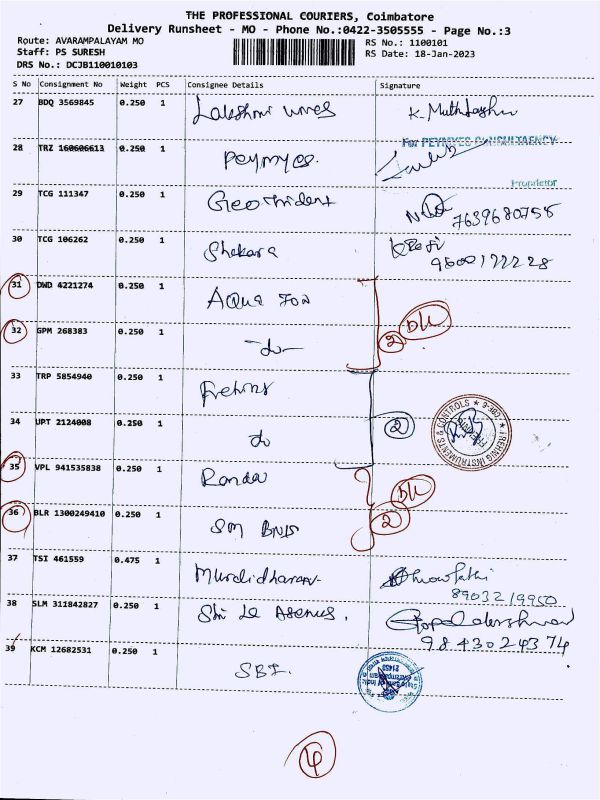 THE PROFESSIONAL COURIERS, Coimbatore
Delivery Runsheet - MO - Phone No.:0422-3505555 - Page No.:3
Route: AVARAMPALAYAM MO RS No.: 1100101
Staff: PS SURESH RS Date: 18-Jan-2023
DRS No.: DCJB110010103
S No Consignment No Weight PCS Consignee Details Signature
27 BDQ 3569845 0.250 1 Lakshmi wires K. Muthulakshmi
For PEYMYES CONSULTAENCY
28 TRZ 160606613 0.250 1 Peymyes.
Proprietor
29 TCG 111347 0.250 1 Geotrident 7639680758
30 TCG 106262 0.250 1 Shekara
9500122228
31 DWD 4221274 0.250 1 Aqua Fox
32 GPM 268383 0.250 1 -do- 2
33 TRP 5854940 0.250 1
34 UPT 2124008 0.250 1 do 2
35 VPL 941535838 0.250 1
36 BLR 1300249410 0.250 1 2
37 TSI 461559 0.475 1 Muralidharan
8903219950
38 SLM 311842827 0.250 1
9843024374
39 KCM 12682531 0.250 1 SBI.
4